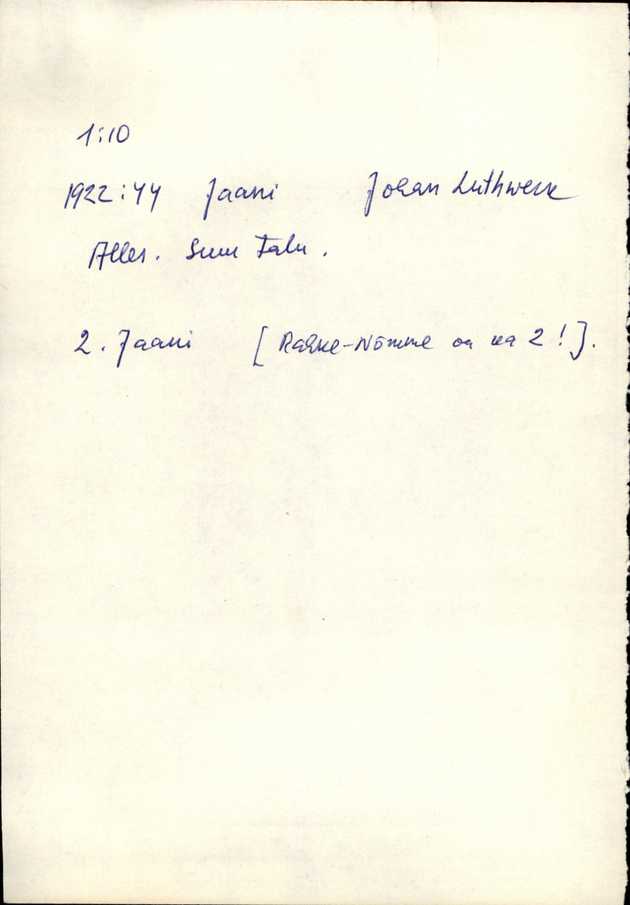 1:10
1922:44 Jaani Johan Luthwerk
Alles. Suur talu.
2. Jaani [Rahke-Nõmme on ka 2!].